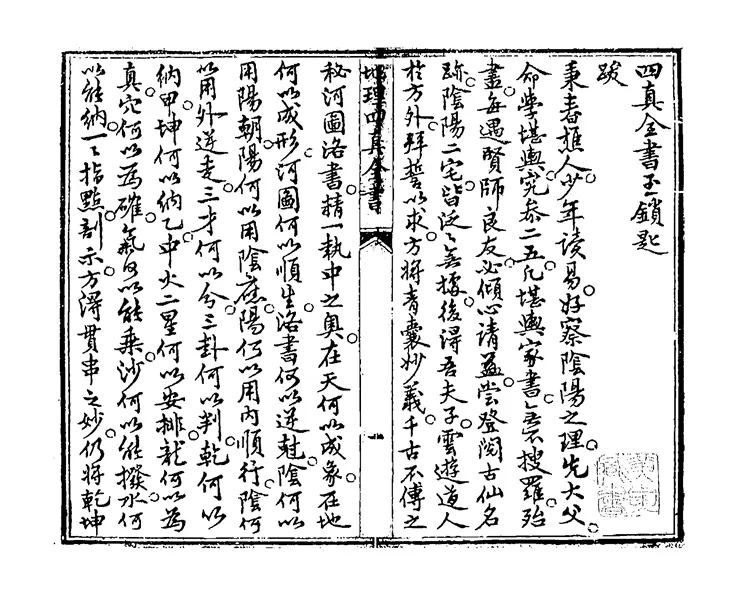 四真全書玉鎖匙
跋
秉者樵人少年讀易好察陰陽之理先大父
命學堪輿究參二五凡堪輿家書無不搜羅殆
盡每遇賢師良友必傾心請益嘗登閱古仙名
跡陰陽二宅皆泛泛無據後得吾夫子雲遊道人
於方外拜誓以求方將青囊妙義千古不傳之
地理四真全書
一
秘河圖洛書精一執中之奧在天何以成象在地
何以成形河圖何以順生洛書何以逆尅陰何以
用陽朝陽何以用陰應陽何以用內順行陰何
以用外逆走三才何以分三卦何以判乾何以
納甲坤何以納乙中火二星何以安排龍何以為
真穴何以為確氣何以能乘沙何以能撥水何
以能納一一指點剖示方得貫串之妙仍將乾坤